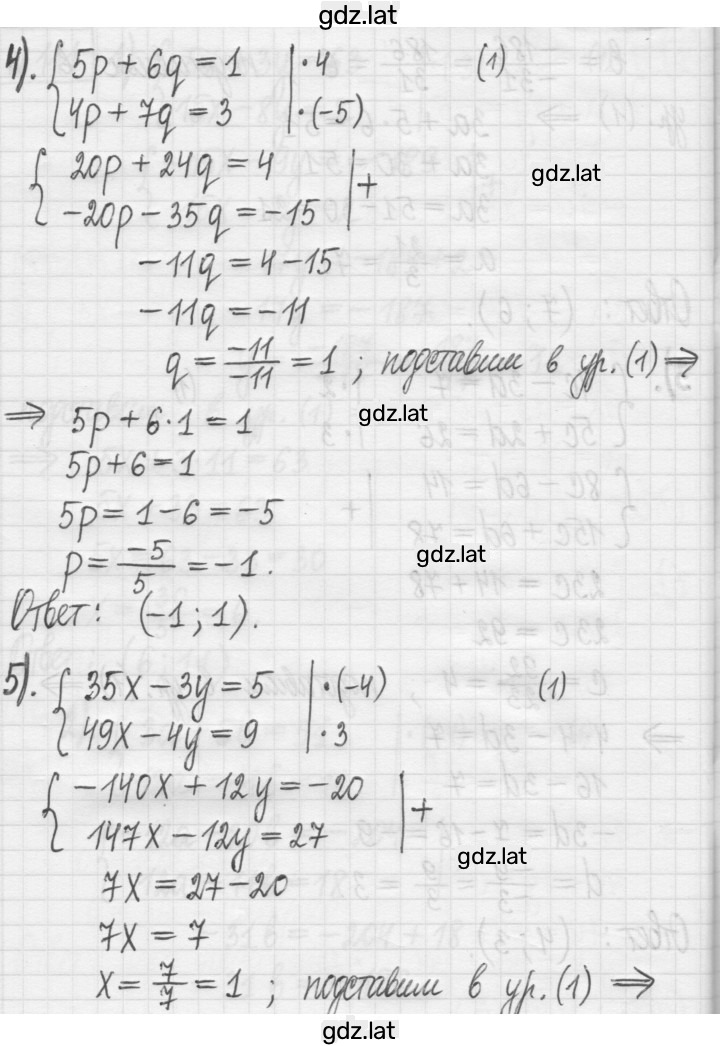 gdz.lat
4). { 5p + 6q = 1 | · 4 (1)
4p + 7q = 3 | · (-5)
{ 20p + 24q = 4 | +
-20p - 35q = -15
gdz.lat
-11q = 4 - 15
-11q = -11
q = -11/-11 = 1 ; подставим в ур. (1) ⇒
⇒ 5p + 6·1 = 1
gdz.lat
5p + 6 = 1
5p = 1 - 6 = -5
p = -5/5 = -1.
gdz.lat
Ответ: (-1; 1).
5). { 35x - 3y = 5 | · (-4) (1)
49x - 4y = 9 | · 3
{ -140x + 12y = -20 | +
147x - 12y = 27
gdz.lat
7x = 27 - 20
7x = 7
x = 7/7 = 1 ; подставим в ур. (1) ⇒
gdz.lat